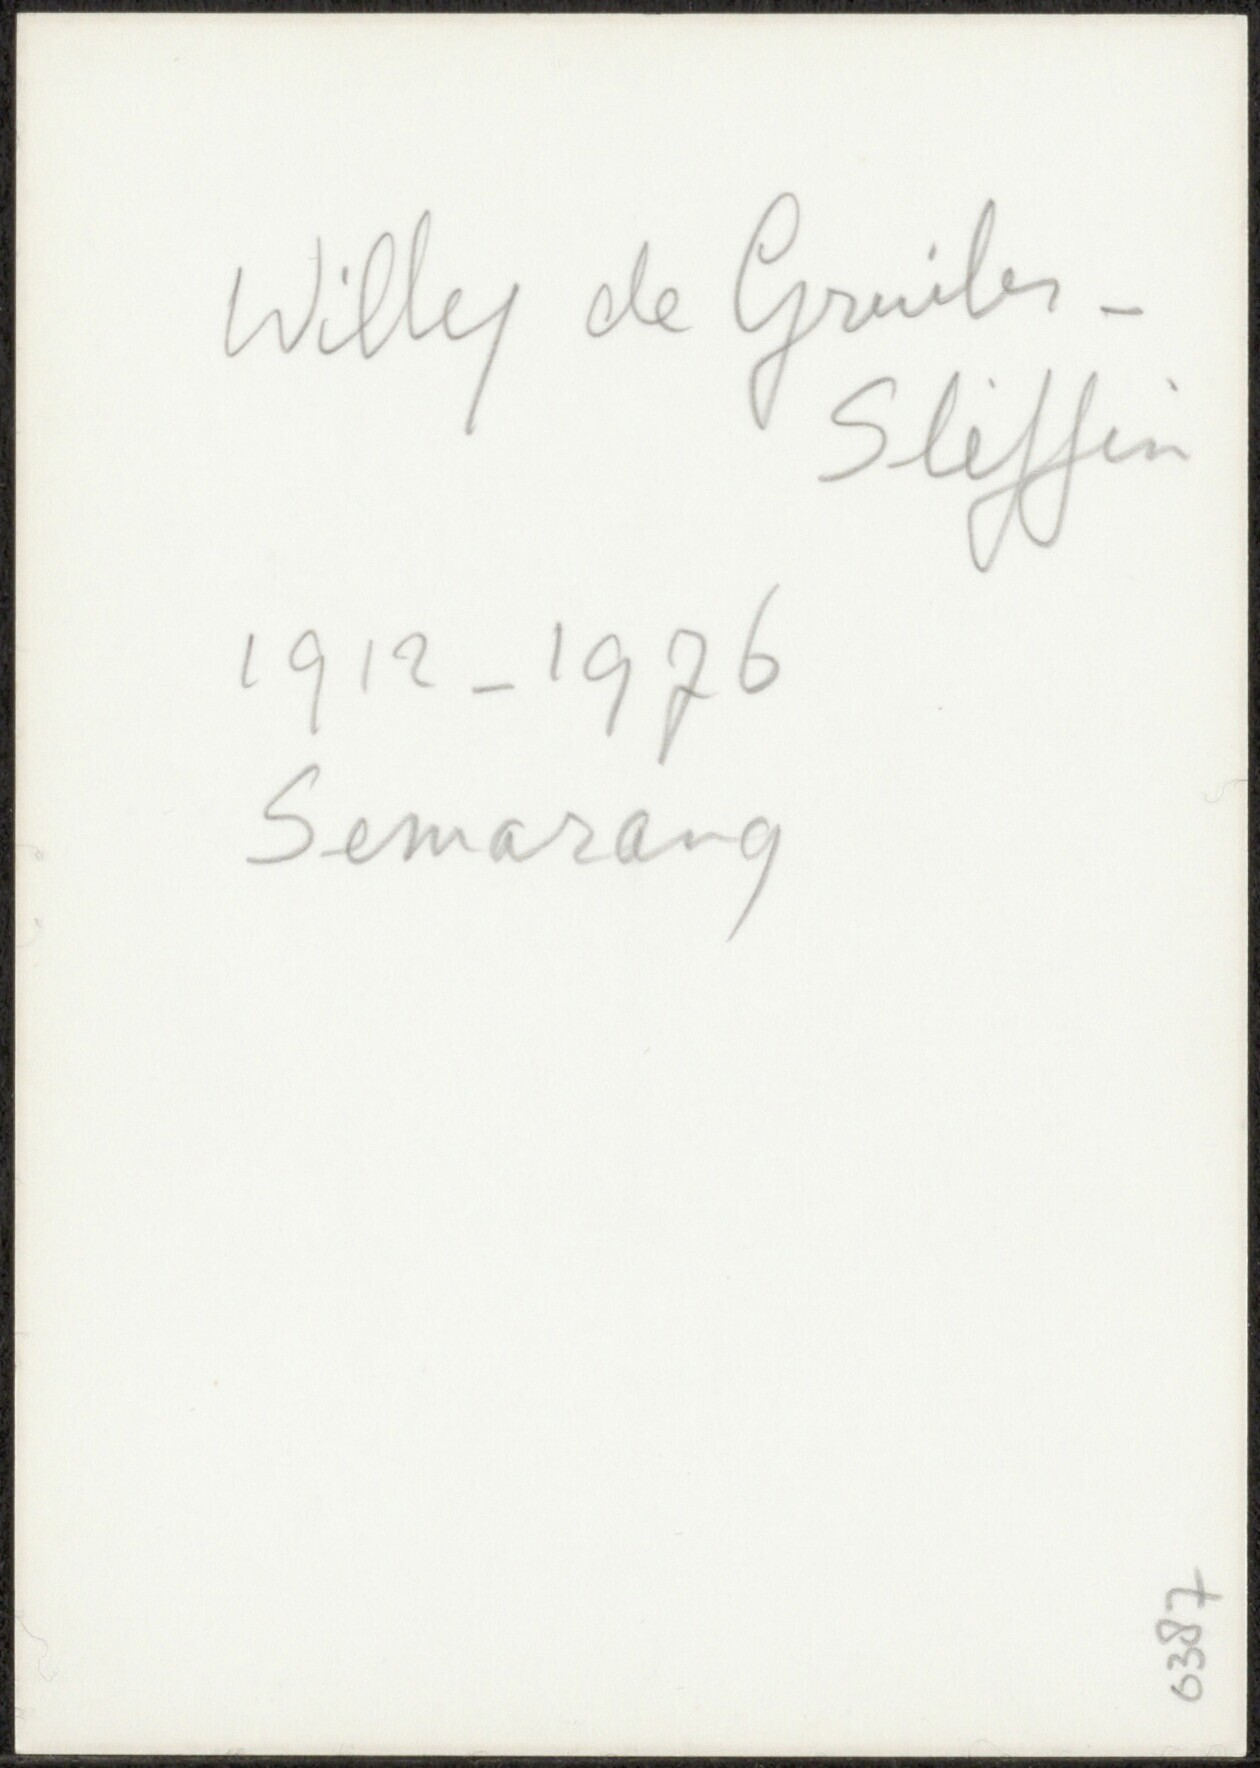 Willy de Gruiter -
1912 - 1976
Semarang
6387